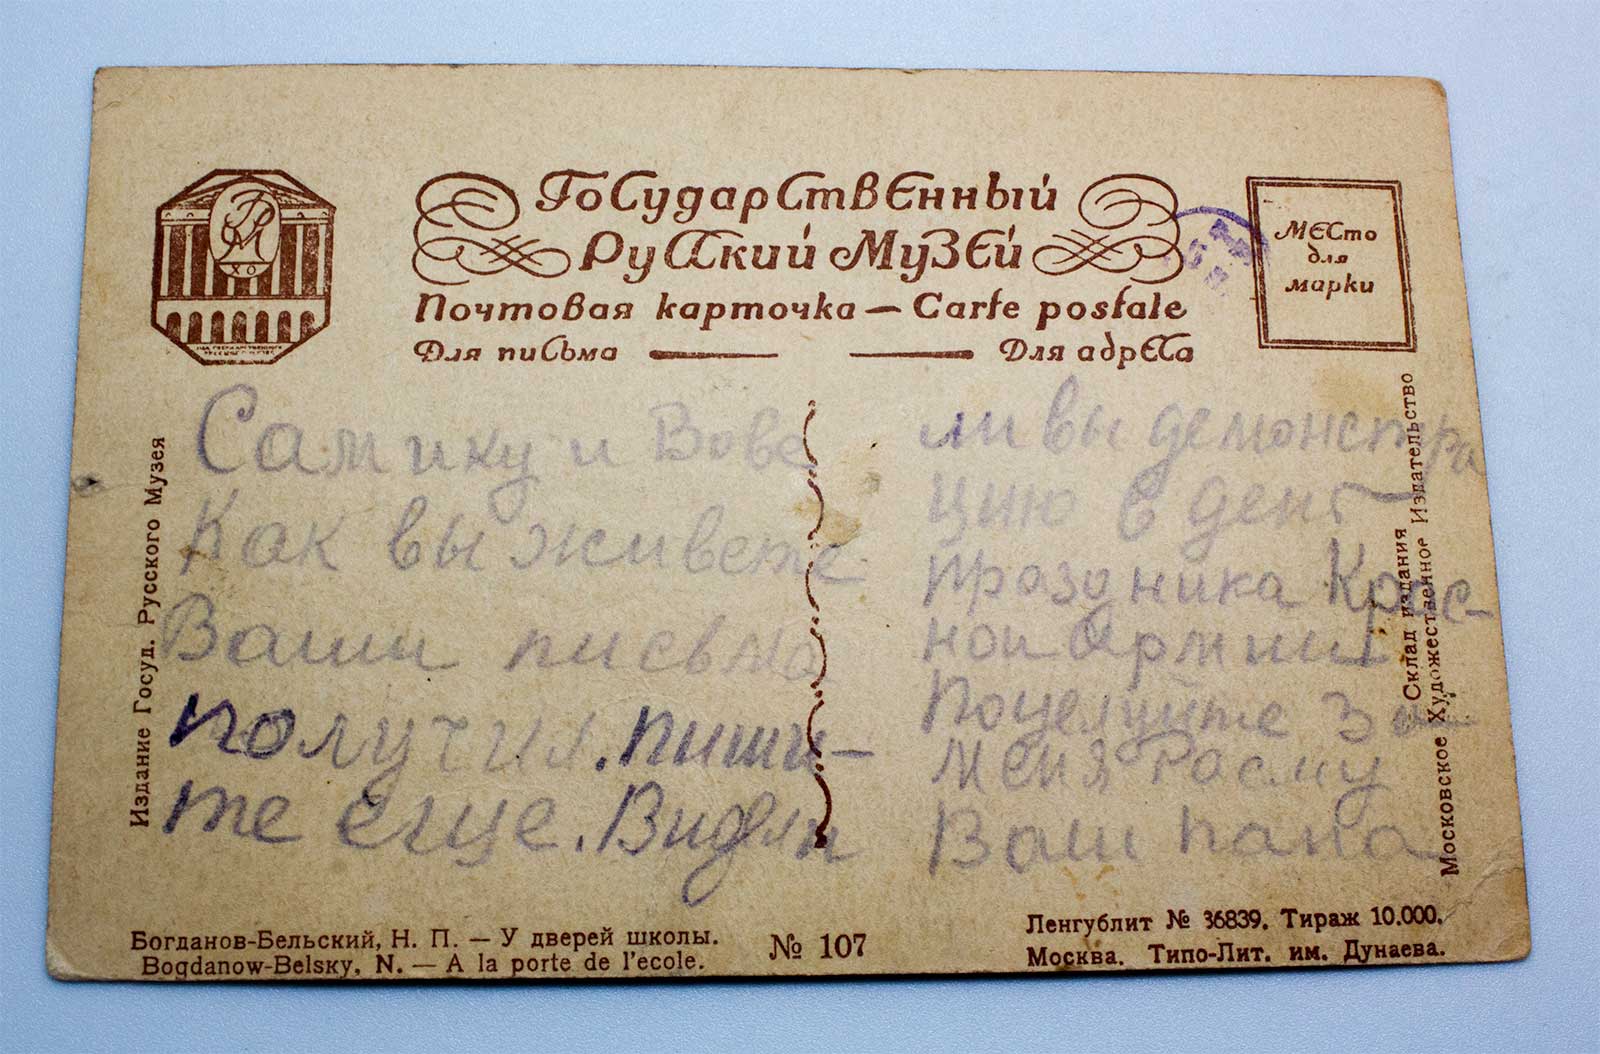 ГОСУДАРСТВЕННЫЙ
РУССКИЙ МУЗЕЙ
Почтовая карточка — Carte postale
Для письма
Для адреса
МЕСТО
для
марки
РМ
ХО
Издание Госуд. Русского Музея
Самику и Вове
Как вы живете
Ваши письма
получил. пиши-
те еще. Видели
ли вы демонстра
цию в день
праздника Крас-
ной Армии
Поцелуйте за
меня маму
Ваш папа
Склад издания
Московское Художественное Издательство
Богданов-Бельский, Н. П. — У дверей школы.
Bogdanow-Belsky, N. — A la porte de l'ecole.
№ 107
Ленгублит № 36839. Тираж 10.000.
Москва. Типо-Лит. им. Дунаева.